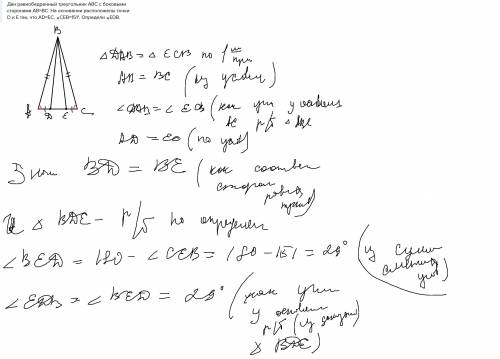 Дан равнобедренный треугольник ABC с боковыми
сторонами AB=BC. На основании расположены точки
D и E так, что AD=EC, ∠CEB=151°. Определи ∠EDB.
B
A D E C
△ DAB = △ ECB по 1
AB = BC (из услов)
∠DAB = ∠ ECB (как угл у основан
AC р/б △ ABC
AD = EC (по усл)
BD = BE (как соотв
сторон
равных
△ BDE – р/б по определен
∠BED = 180 – ∠CEB = 180 – 151 = 29° (из суммы
смежных
угл)
∠EDB = ∠BED = 29° (как угл
у основан
р/б (из
△ BDE)